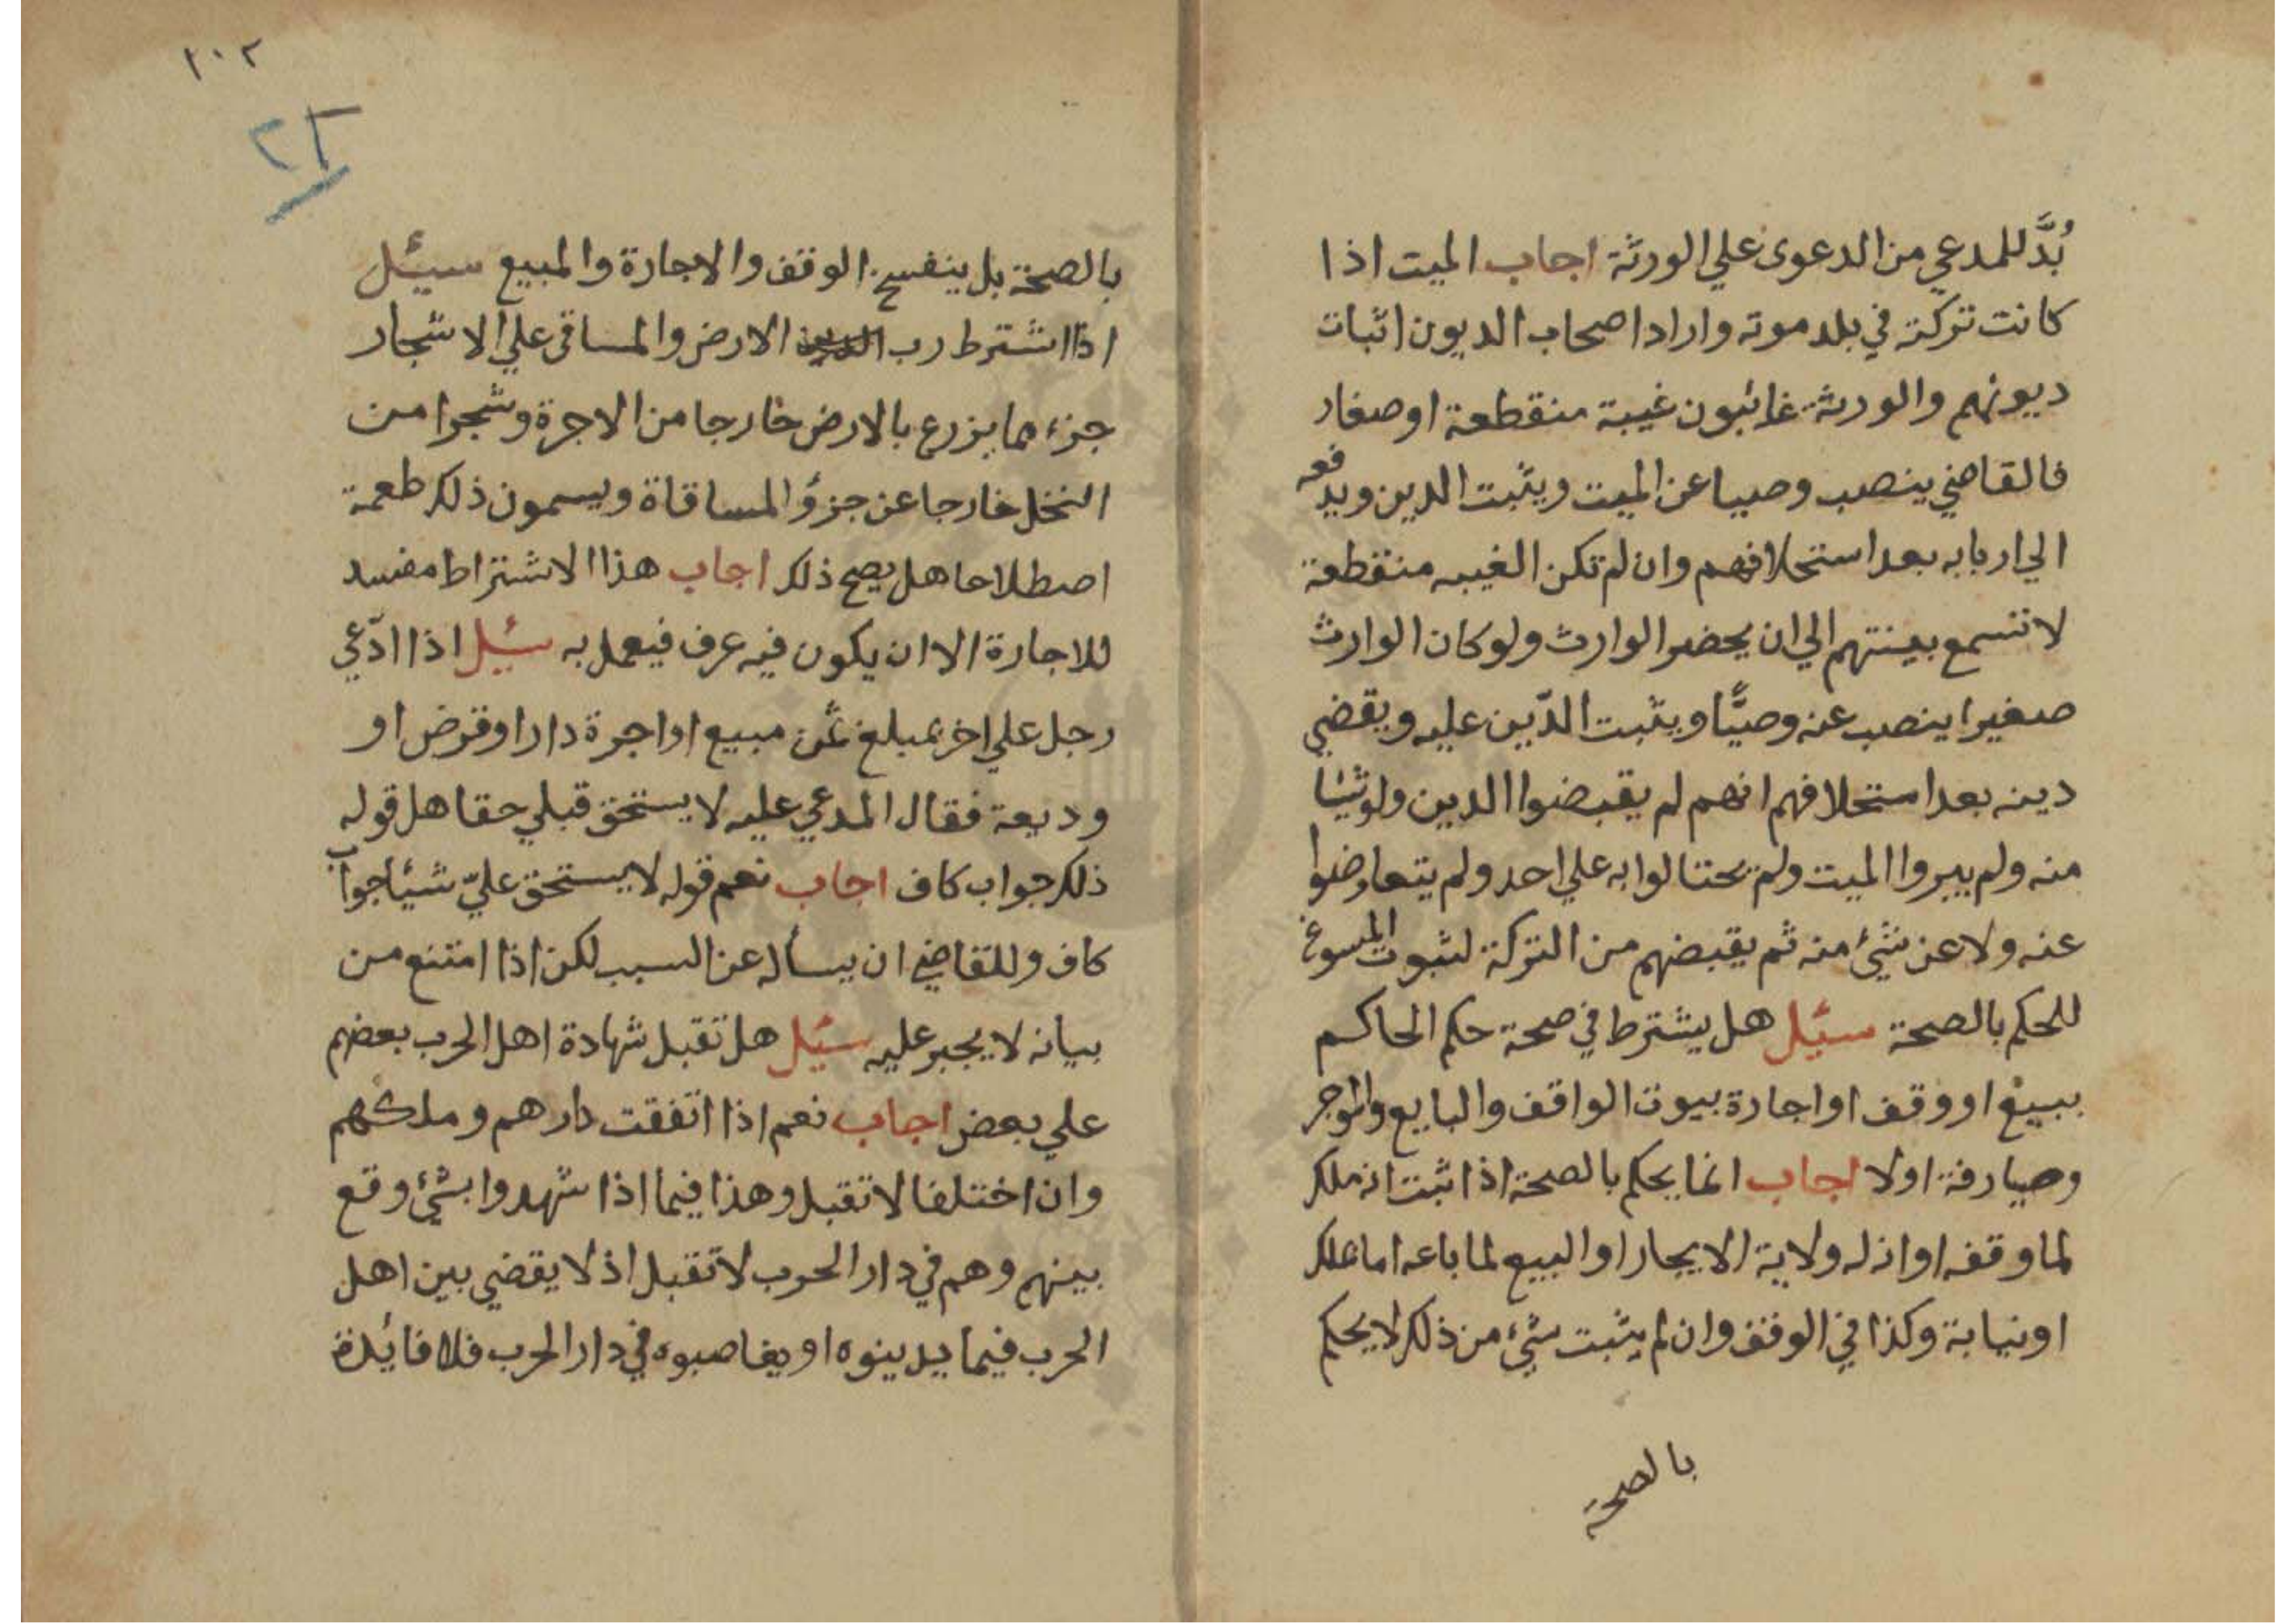 بُدَّ للمدعي من الدعوى علي الورثة اجاب الميت اذا
كانت تركته في بلد موته واراد اصحاب الديون اثبات
ديونهم والورثة غائبون غيبة منقطعة او صغار
فالقاضي ينصب وصيا عن الميت ويثبت الدين ويدفعه
الي اربابه بعد استحلافهم وان لم تكن الغيبه منقطعة
لا تسمع بينتهم الي ان يحضر الوارث ولو كان الوارث
صغيرا ينصب عنه وصيًّا ويثبت الدّين عليه ويقضي
دينه بعد استحلافهم انهم لم يقبضوا الدين ولو شيئا
منه ولم يبروا الميت ولم يحتالوا به علي احد ولم يتعاوضوا
عنه ولا عن شئ منه ثم يقبضهم من التركة لثبوت المسوغ
للحكم بالصحة سئل هل يشترط في صحة حكم الحاكم
ببيع او وقف او اجارة بيوت الواقف والبايع والموجر
وصيارفة اولا اجاب انما يحكم بالصحة اذا ثبت انه ملك
لما وقفه او انه له ولاية الايجار او البيع لما باعه اما بملك
او نيابة وكذا في الوقف وان لم يثبت شئ من ذلك لا يحكم
بالصحة
١٠٢
٢٢
بالصحة بل ينفسخ الوقف والاجارة والمبيع سئل
اذا اشترط رب الارض والمساقى علي الاشجار
جزء مما يزرع بالارض خارجا من الاجرة وشجرا من
النخل خارجا عن جزؤ المساقاة ويسمون ذلك طعمة
اصطلاحا هل يصح ذلك اجاب هذا الاشتراط مفسد
للاجارة الا ان يكون فيه عرف فيعمل به سئل اذا ادّعي
رجل علي اخر بمبلغ ثمن مبيع او اجرة دار او قرض او
وديعة فقال المدعي عليه لا يستحق قبلي حقا هل قوله
ذلك جواب كاف اجاب نعم قوله لا يستحق عليّ شيئا جواب
كاف وللقاضي ان يسأله عن السبب لكن اذا امتنع من
بيانه لا يجبر عليه سئل هل تقبل شهادة اهل الحرب بعضهم
علي بعض اجاب نعم اذا اتفقت دارهم وملكهم
وان اختلفا لا تقبل وهذا فيما اذا شهدوا بشئ وقع
بينهم وهم في دار الحرب لا تقبل اذ لا يقضي بين اهل
الحرب فيما يدينوه او يغاصبوه في دار الحرب فلا فائدة